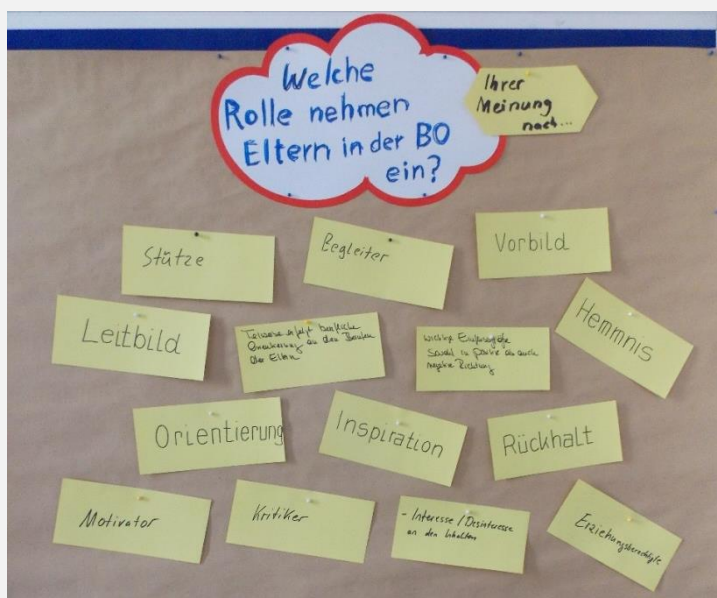 Welche
Rolle nehmen
Eltern in der BO
ein?
Ihrer
Meinung
nach...
Stütze
Begleiter
Vorbild
Leitbild
Teilweise erfolgt berufliche
Orientierung an den Berufen
der Eltern
wichtige Einflussgröße
Sowohl in positive als auch
negative Richtung
Hemmnis
Orientierung
Inspiration
Rückhalt
Motivator
Kritiker
- Interesse / Desinteresse
an den Inhalten
Erziehungsberechtigte